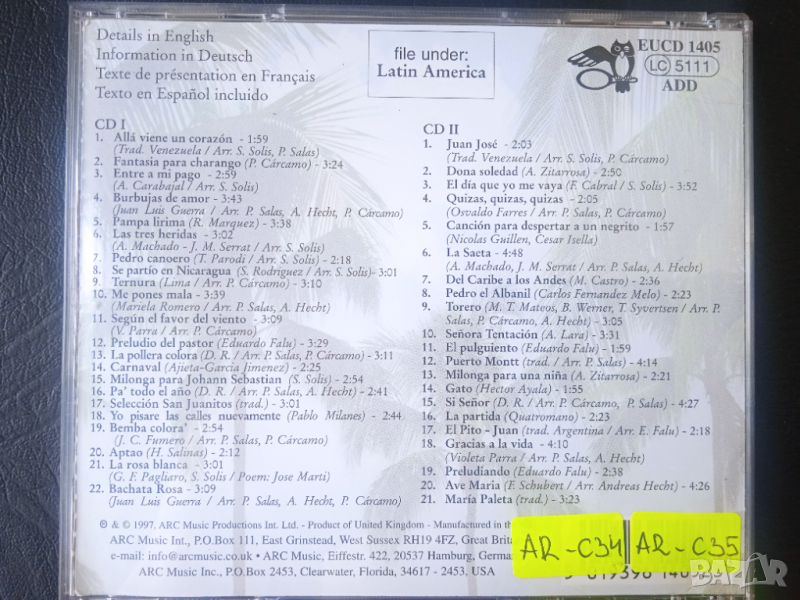 Details in English
Information in Deutsch
Texte de présentation en Français
Texto en Español incluido
file under:
Latin America
EUCD 1405
LC 5111
ADD
CD I
1. Allá viene un corazón - 1:59
(Trad. Venezuela / Arr. S. Solis, P. Salas)
2. Fantasia para charango (P. Cárcamo) - 3:24
3. Entre a mi pago - 2:59
(A. Carabajal / Arr. S. Solis)
4. Burbujas de amor - 3:43
(Juan Luis Guerra / Arr. P. Salas, A. Hecht, P. Cárcamo)
5. Pampa lirima (R. Marquez) - 3:38
6. Las tres heridas - 3:02
(A. Machado - J. M. Serrat / Arr. S. Solis)
7. Pedro canoero (T. Parodi / Arr. S. Solis) - 2:18
8. Se partío en Nicaragua (S. Rodriguez / Arr. S. Solis) - 3:01
9. Ternura (Lima / Arr. P. Cárcamo) - 3:10
10. Me pones mala - 3:39
(Mariela Romero / Arr. P. Salas, A. Hecht)
11. Según el favor del viento - 3:09
(V. Parra / Arr. P. Cárcamo)
12. Preludio del pastor (Eduardo Falu) - 3:29
13. La pollera colora (D. R. / Arr. P. Salas, P. Cárcamo) - 3:11
14. Carnaval (Ajieta-Garcia Jimenez) - 2:25
15. Milonga para Johann Sebastian (S. Solis) - 2:54
16. Pa' todo el año (D. R. / Arr. P. Salas, A. Hecht) - 2:41
17. Selección San Juanitos (trad.) - 3:01
18. Yo pisare las calles nuevamente (Pablo Milanes) - 2:44
19. Bemba colora' - 2:54
(J. C. Fumero / Arr. P. Salas, P. Cárcamo)
20. Aptao (H. Salinas) - 2:12
21. La rosa blanca - 3:01
(G. F. Pagliaro, S. Solis / Poem: Jose Marti)
22. Bachata Rosa - 3:09
(Juan Luis Guerra / Arr. P. Salas, A. Hecht, P. Cárcamo)
CD II
1. Juan José - 2:03
(Trad. Venezuela / Arr. S. Solis, P. Cárcamo)
2. Dona soledad (A. Zitarrosa) - 2:50
3. El día que yo me vaya (F. Cabral / S. Solis) - 3:52
4. Quizas, quizas, quizas - 2:05
(Osvaldo Farres / Arr. P. Salas, P. Cárcamo)
5. Canción para despertar a un negrito - 1:57
(Nicolas Guillen, Cesar Isella)
6. La Saeta - 4:48
(A. Machado, J. M. Serrat / Arr. P. Salas, A. Hecht)
7. Del Caribe a los Andes (M. Castro) - 2:36
8. Pedro el Albanil (Carlos Fernandez Melo) - 2:23
9. Torero (M. T. Mateos, B. Werner, T. Syvertsen / Arr. P. Salas, P. Cárcamo, A. Hecht) - 3:05
10. Señora Tentación (A. Lara) - 3:31
11. El pulguiento (Eduardo Falu) - 1:59
12. Puerto Montt (trad. / Arr. P. Salas) - 4:14
13. Milonga para una niña (A. Zitarrosa) - 2:21
14. Gato (Hector Ayala) - 1:55
15. Si Señor (D. R. / Arr. P. Cárcamo, P. Salas) - 4:27
16. La partida (Quatromano) - 2:23
17. El Pito - Juan (trad. Argentina / Arr. E. Falu) - 2:18
18. Gracias a la vida - 4:10
(Violeta Parra / Arr. P. Salas, A. Hecht)
19. Preludiando (Eduardo Falu) - 2:38
20. Ave Maria (F. Schubert / Arr. Andreas Hecht) - 4:26
21. María Paleta (trad.) - 3:23
℗ & © 1997, ARC Music Productions Int. Ltd. - Product of United Kingdom - Manufactured in the
ARC Music, P.O.Box 111, East Grinstead, West Sussex RH19 4FZ, Great
e-mail: info@arcmusic.co.uk • ARC Music, Eiffestr. 422, 20537 Hamburg,
ARC Music Inc., P.O.Box 2453, Clearwater, Florida, 34617 - 2453, USA
AR-C34
AR-C35
BAZAR